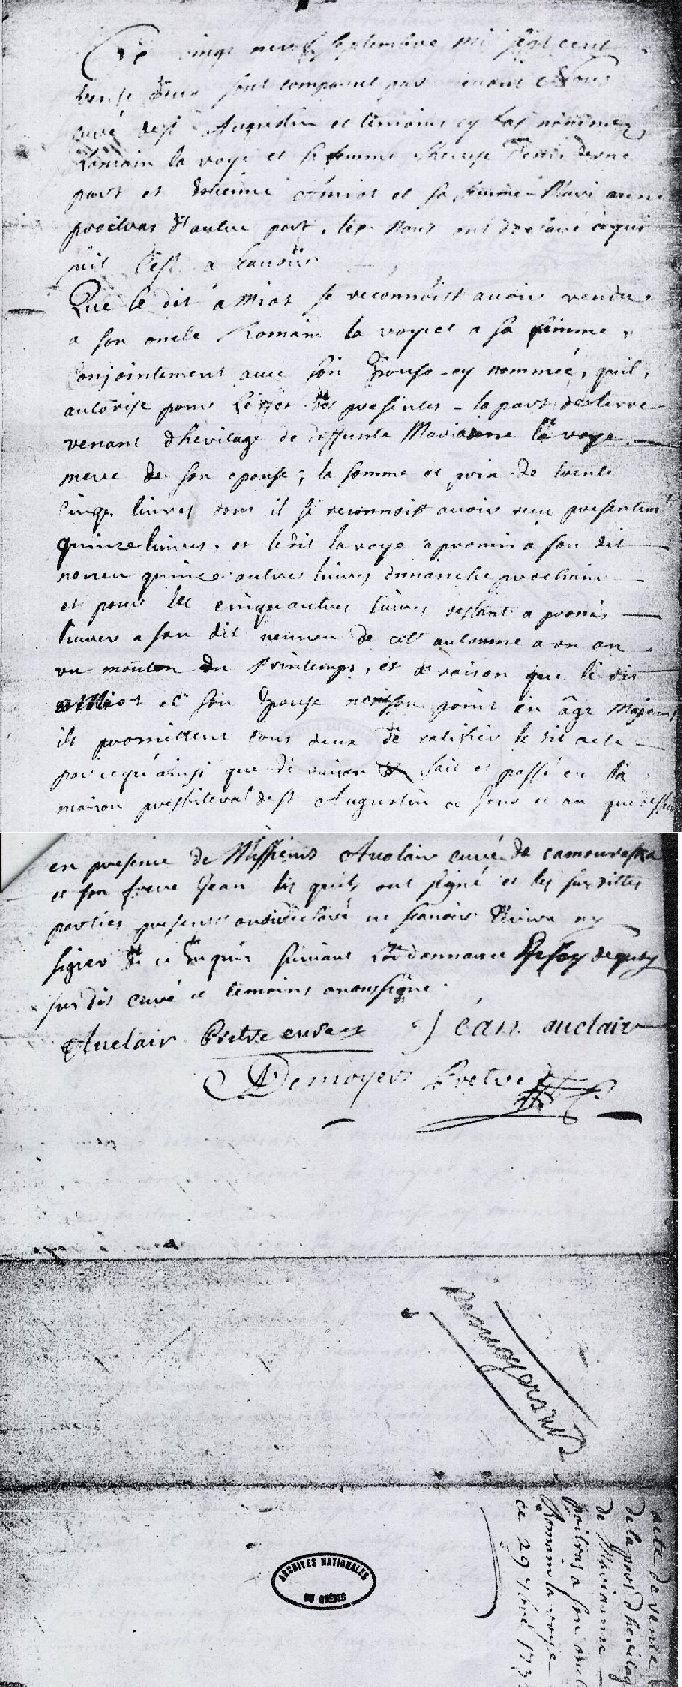 Le vingt neuf septembre mil sept cent
trente deux sont comparut par devant Nous
curé de st Augustin et temoins cy bas nommez
Romain la voye et sa femme therese
part et Estienne Amiot et sa femme Mari anne
poitras d'autre part, les nous ont declaré ce qui
suit C'est a scavoir
Que le dit amiot se reconnoist avoir vendu
a son oncle Romain la voye et a sa femme,
conjointement avec son Epouse cy nommée, quil
autorise pour l'effet des presentes la part de terre
venant d'heritage de deffunte Marianne la voye
mere de son epouse, la somme et prix de trente
cinqs livres dont il se reconnoist avoir receu presentement
quinze livres, et le dit la voye a promis a son dit
neveu quinze autres livres dimanche prochain
et pour les cinq autres livres restant a promis
livrer a son dit neveu de cet automne a un an
un mouton du printemps, et a raison que le dit
amiot et son Epouse ne sont point en âge majeur
ils promettent tous deux de ratifier le dit acte
par ce qu'ainsi que de raison fait et passé en la
maison presbiteral de st Augustin ce jour et an que dessus
en presence de Messieurs Auclair curé de camouraska
et son frere Jean les quels ont signé et les susdittes
parties presentes ont declaré ne scavoir Ecrire ny
signer de ce Enquis suivant L'ordonnance
sus dit curé et temoins avons signé.
Auclair Prêtre curé Jean auclair
Desnoyers Prêtre
Desnoyers
acte de vente
de la part d'heritage
de Marianne
poitras a son oncle
Romain la voye
ce 29 7bre 173
ARCHIVES NATIONALES
DU QUÉBEC